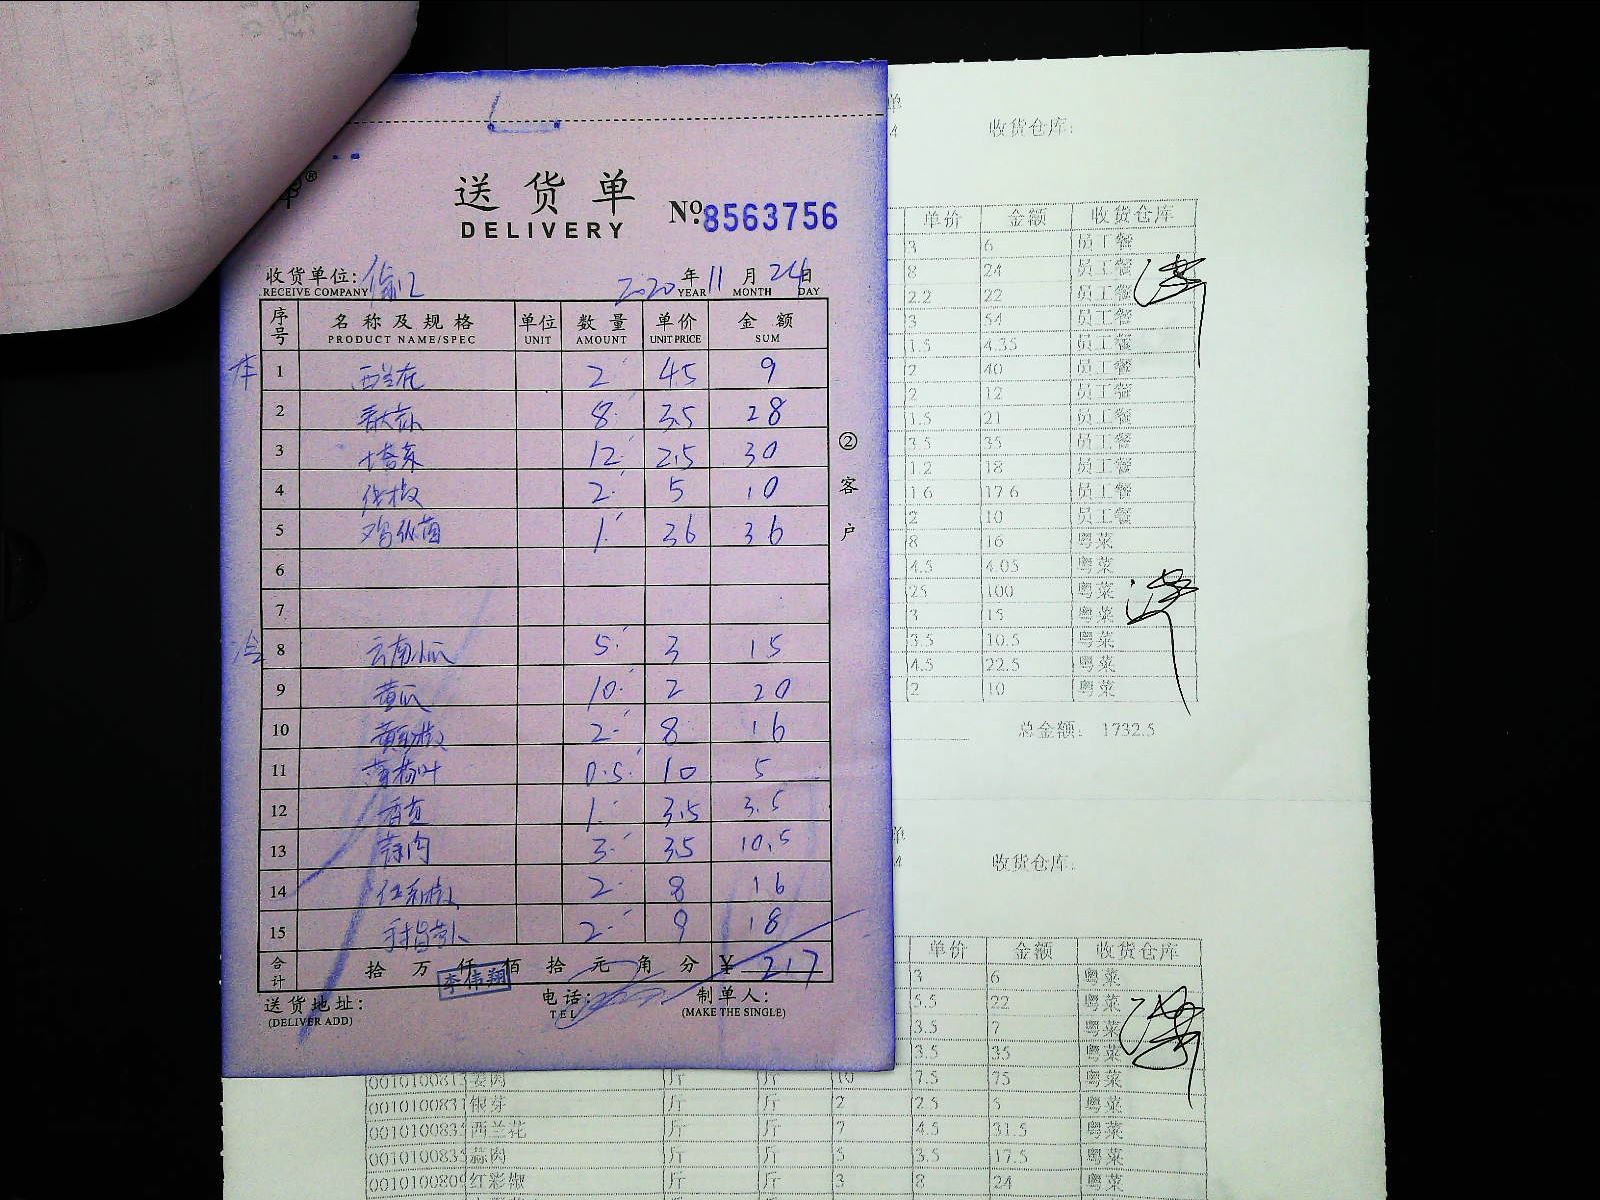 送货单
DELIVERY
№:8563756
收货单位:
RECEIVE COMPANY
2020 年 11 月 24 日
YEAR MONTH DAY
序号 名称及规格 单位 数量 单价 金额
PRODUCT NAME/SPEC UNIT AMOUNT UNIT PRICE SUM
1 西兰花 2 4.5 9
2 8 3.5 28
3 塔菜 12 2.5 30
4 2 5 10
5 鸡纵菌 1 36 36
6
7
8 云南小瓜 5 3 15
9 黄瓜 10 2 20
10 黄彩椒 2 8 16
11 薄荷叶 0.5 10 5
12 1 3.5 3.5
13 蒜肉 3 3.5 10.5
14 红彩椒 2 8 16
15 手指萝卜 2 9 18
合计 拾 万 仟 佰 拾 元 角 分 ¥ 217
李伟翔
送货地址: 电话: 制单人:
(DELIVER ADD) TEL (MAKE THE SINGLE)
②客户
单
4 收货仓库:
单价 金额 收货仓库
3 6 员工餐
8 24 员工餐
2.2 22 员工餐
3 54 员工餐
1.5 4.35 员工餐
2 40 员工餐
2 12 员工餐
1.5 21 员工餐
3.5 35 员工餐
1.2 18 员工餐
1.6 17.6 员工餐
2 10 员工餐
8 16 粤菜
4.5 4.05 粤菜
25 100 粤菜
3 15 粤菜
3.5 10.5 粤菜
4.5 22.5 粤菜
2 10 粤菜
总金额: 1732.5
单
4 收货仓库:
单价 金额 收货仓库
3 6 粤菜
5.5 22 粤菜
3.5 7 粤菜
3.5 35 粤菜
001010081 姜肉 斤 斤 10 7.5 75 粤菜
001010083 银芽 斤 斤 2 2.5 5 粤菜
001010083 西兰花 斤 斤 7 4.5 31.5 粤菜
001010083 蒜肉 斤 斤 5 3.5 17.5 粤菜
001010080 红彩椒 斤 斤 3 8 24 粤菜